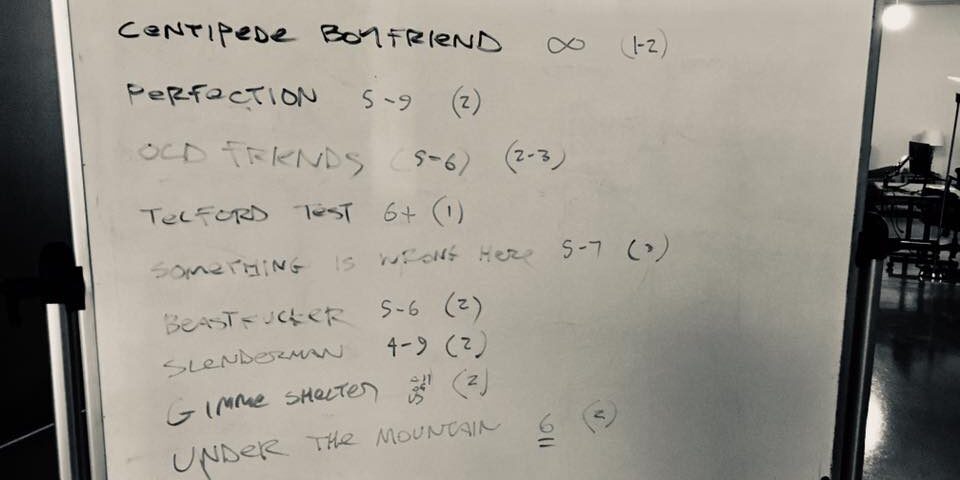 CENTIPEDE BOYFRIEND ∞ (1-2)
PERFECTION 5-9 (2)
OLD FRIENDS (5-6) (2-3)
TELFORD TEST 6+ (1)
SOMETHING IS WRONG HERE 5-7
BEASTFUCKER 5-6 (2)
SLENDERMAN 4-9 (2)
GIMME SHELTER all of us (2)
UNDER THE MOUNTAIN 6